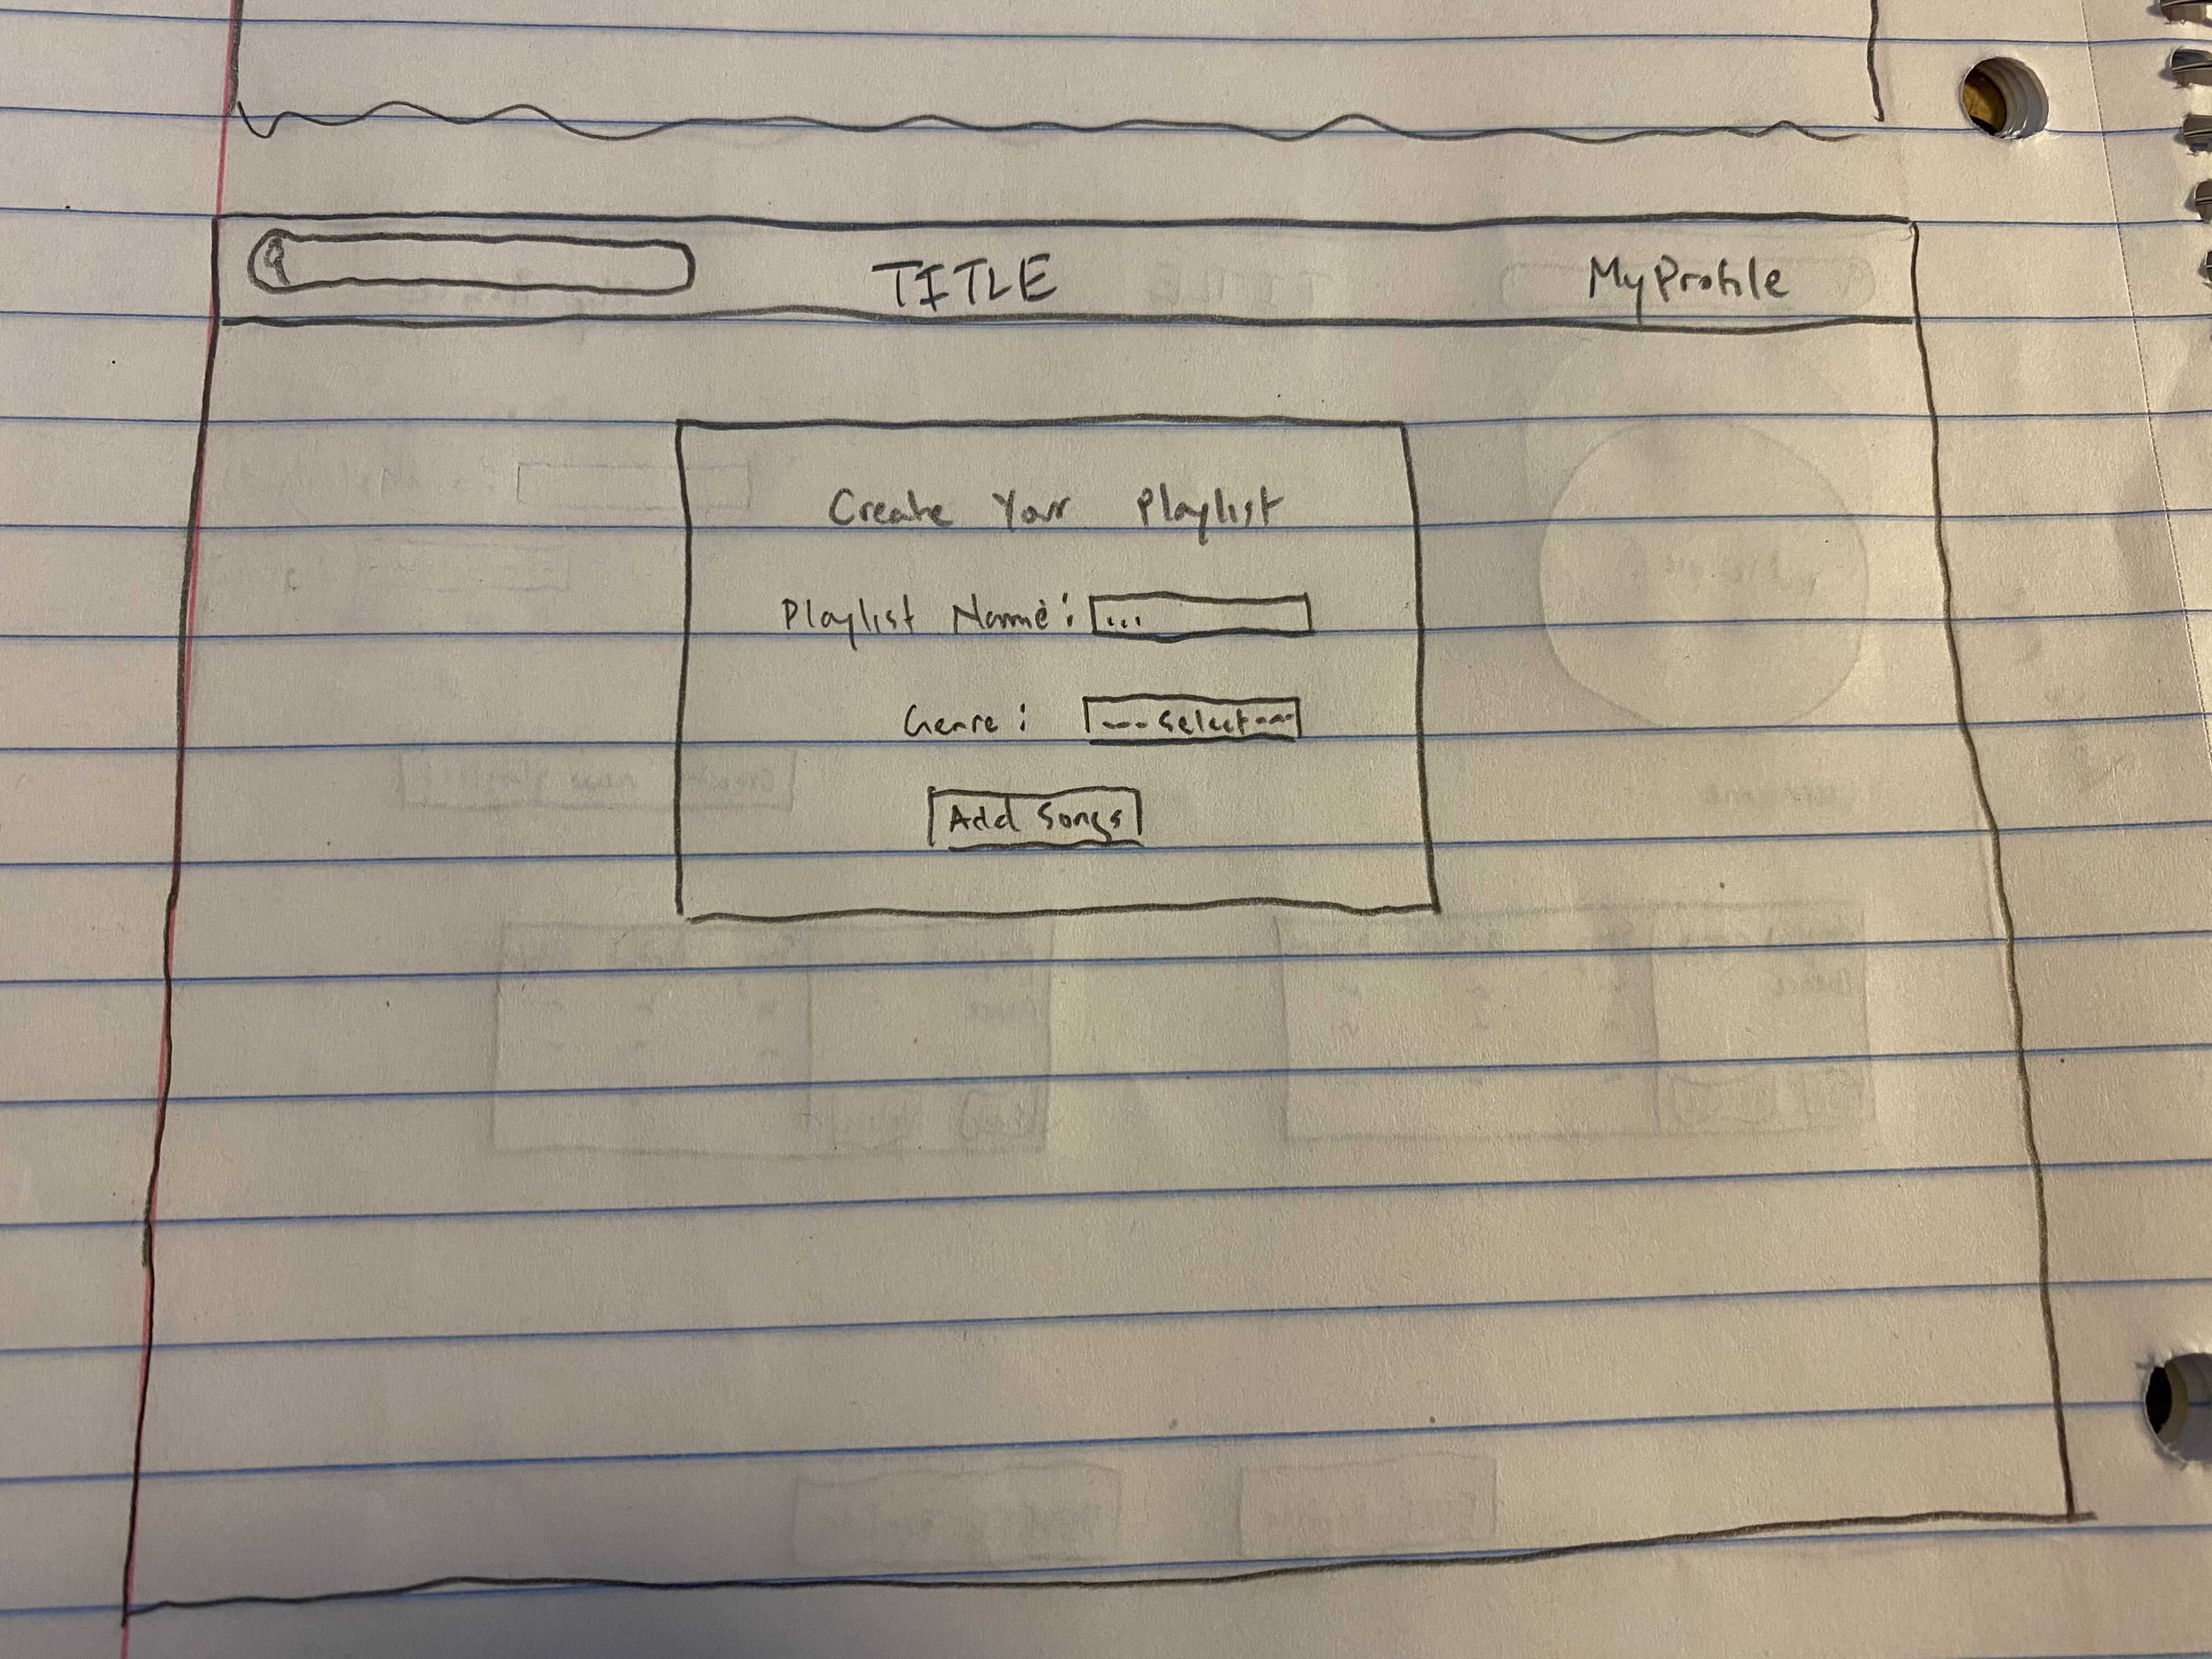 TITLE MyProfile
Create Your Playlist
Playlist Name: ...
Genre: ---Select---
Add Songs